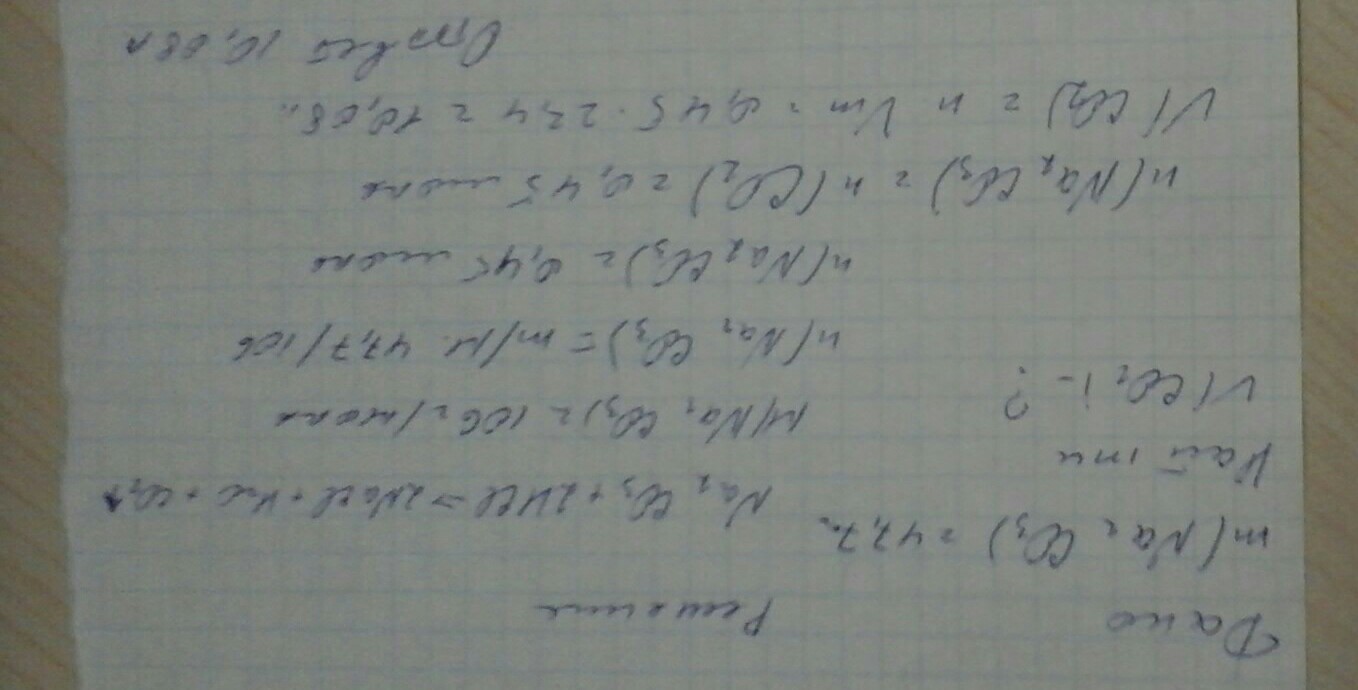 Дано
Решение
m(Na₂CO₃) = 47,7г
Na₂CO₃ + 2HCl → 2NaCl + H₂O + CO₂↑
Найти
M(Na₂CO₃) = 106 г/моль
V(CO₂) - ?
n(Na₂CO₃) = m/M = 47,7/106
n(Na₂CO₃) = 0,45 моль
n(Na₂CO₃) = n(CO₂) = 0,45 моль
V(CO₂) = n · Vm = 0,45 · 22,4 = 10,08л
Ответ 10,08л